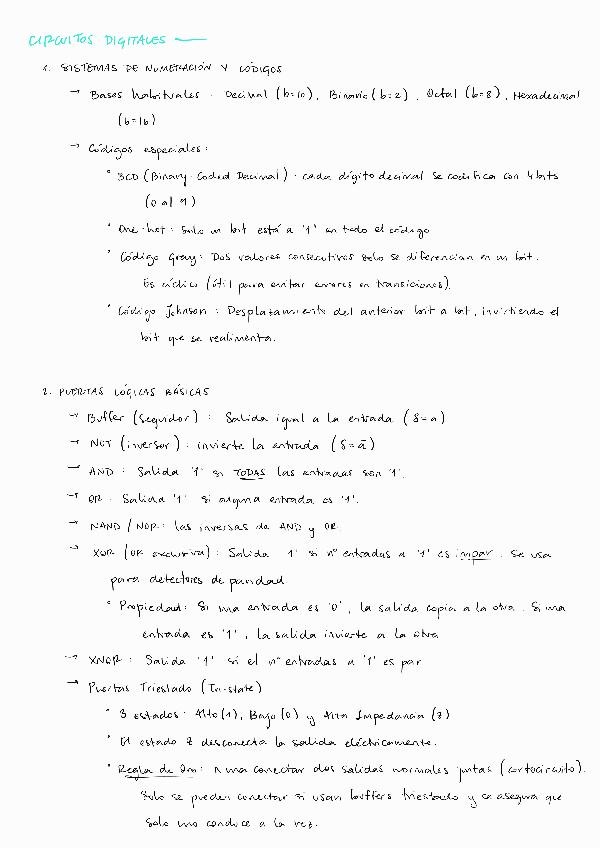 CIRCUITOS DIGITALES —
1. SISTEMAS DE NUMERACIÓN Y CÓDIGOS
→ Bases habituales: Decimal (b=10), Binario (b=2), Octal (b=8), Hexadecimal
(b=16)
→ Códigos especiales:
• BCD (Binary-Coded Decimal): cada dígito decimal se codifica con 4 bits
(0 al 9)
• One-hot: Solo un bit está a '1' en todo el código
• Código Gray: Dos valores consecutivos solo se diferencian en un bit.
Es cíclico (útil para evitar errores en transiciones).
• Código Johnson: Desplazamiento del anterior bit a bit, invirtiendo el
bit que se realimenta.
2. PUERTAS LÓGICAS BÁSICAS
→ Buffer (Seguidor): Salida igual a la entrada (S=a)
→ NOT (inversor): invierte la entrada (S=ā)
→ AND: Salida '1' si TODAS las entradas son '1'.
→ OR: Salida '1' si alguna entrada es '1'.
→ NAND / NOR: las inversas de AND y OR.
→ XOR (OR exclusiva): Salida '1' si nº entradas a '1' es impar. Se usa
para detectores de paridad
• Propiedad: Si una entrada es '0', la salida copia a la otra. Si una
entrada es '1', la salida invierte a la otra
→ XNOR: Salida '1' si el nº entradas a '1' es par
→ Puertas Triestado (Tri-state)
• 3 estados: Alto (1), Bajo (0) y Alta Impedancia (Z)
• El estado Z desconecta la salida eléctricamente.
• Regla de Oro: Nunca conectar dos salidas normales juntas (cortocircuito).
Solo se pueden conectar si usan buffers triestado y se asegura que
solo uno conduce a la vez.